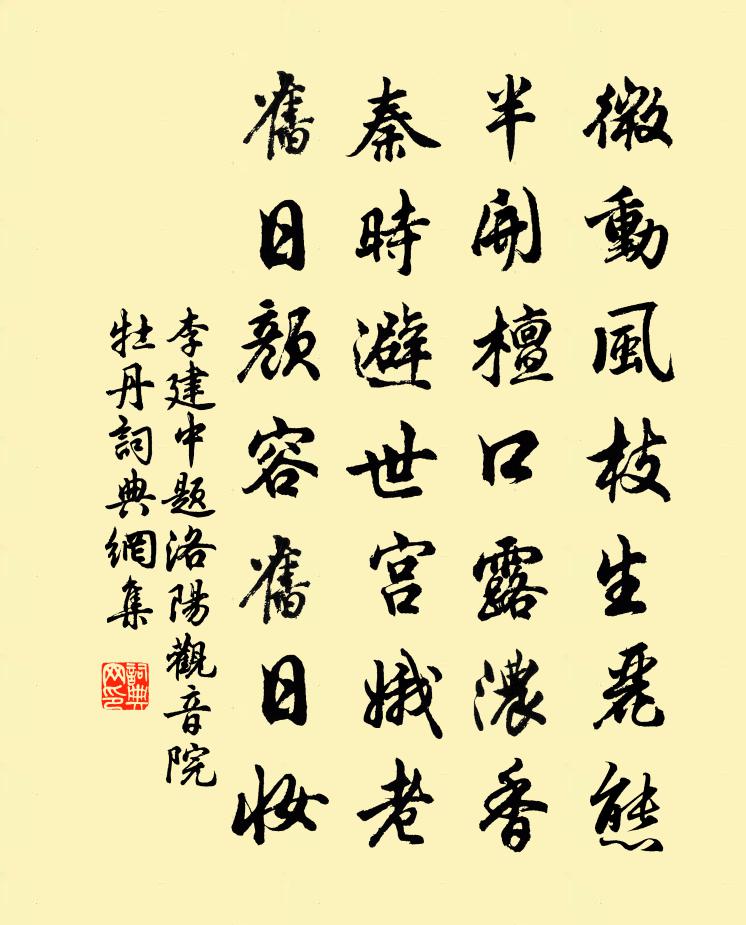 微動風枝生麗態
半開檀口露濃香
秦時避世宮娥老
舊日顏容舊日妝
李建中題洛陽觀音院
牡丹詞典網集
詞典
网印